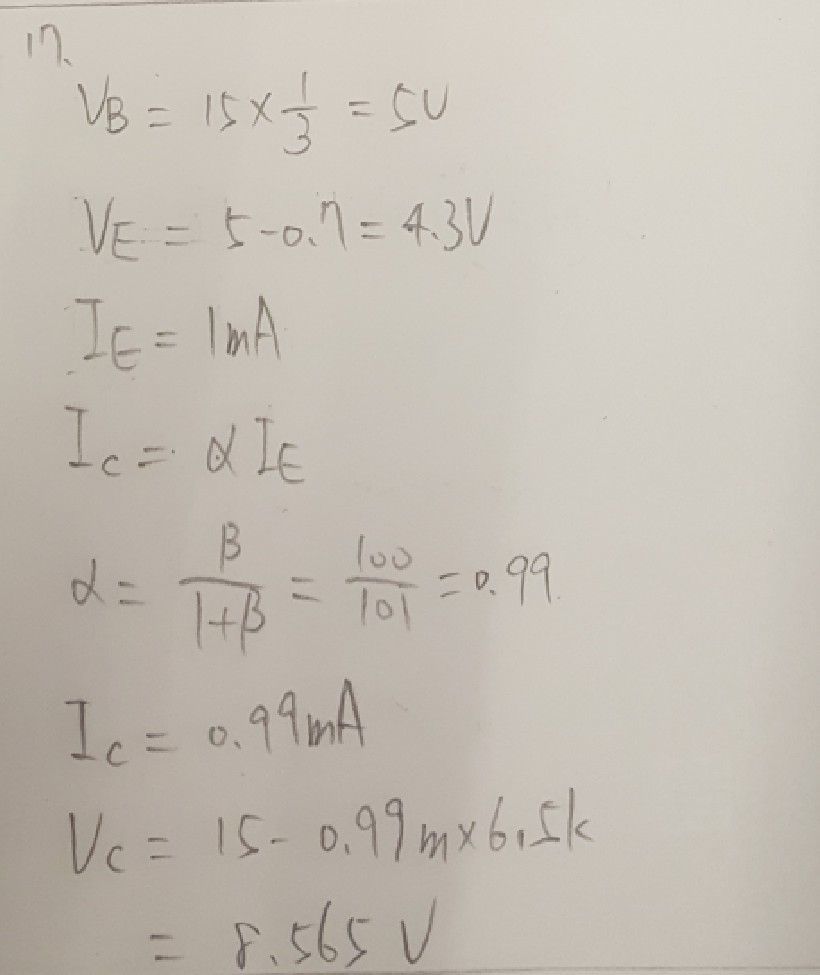 17.
V_B = 15 × 1/3 = 5V
V_E = 5 - 0.7 = 4.3V
I_E = 1mA
I_C = α I_E
α = β/(1+β) = 100/101 = 0.99
I_C = 0.99mA
V_C = 15 - 0.99m × 6.5k
= 8.565 V